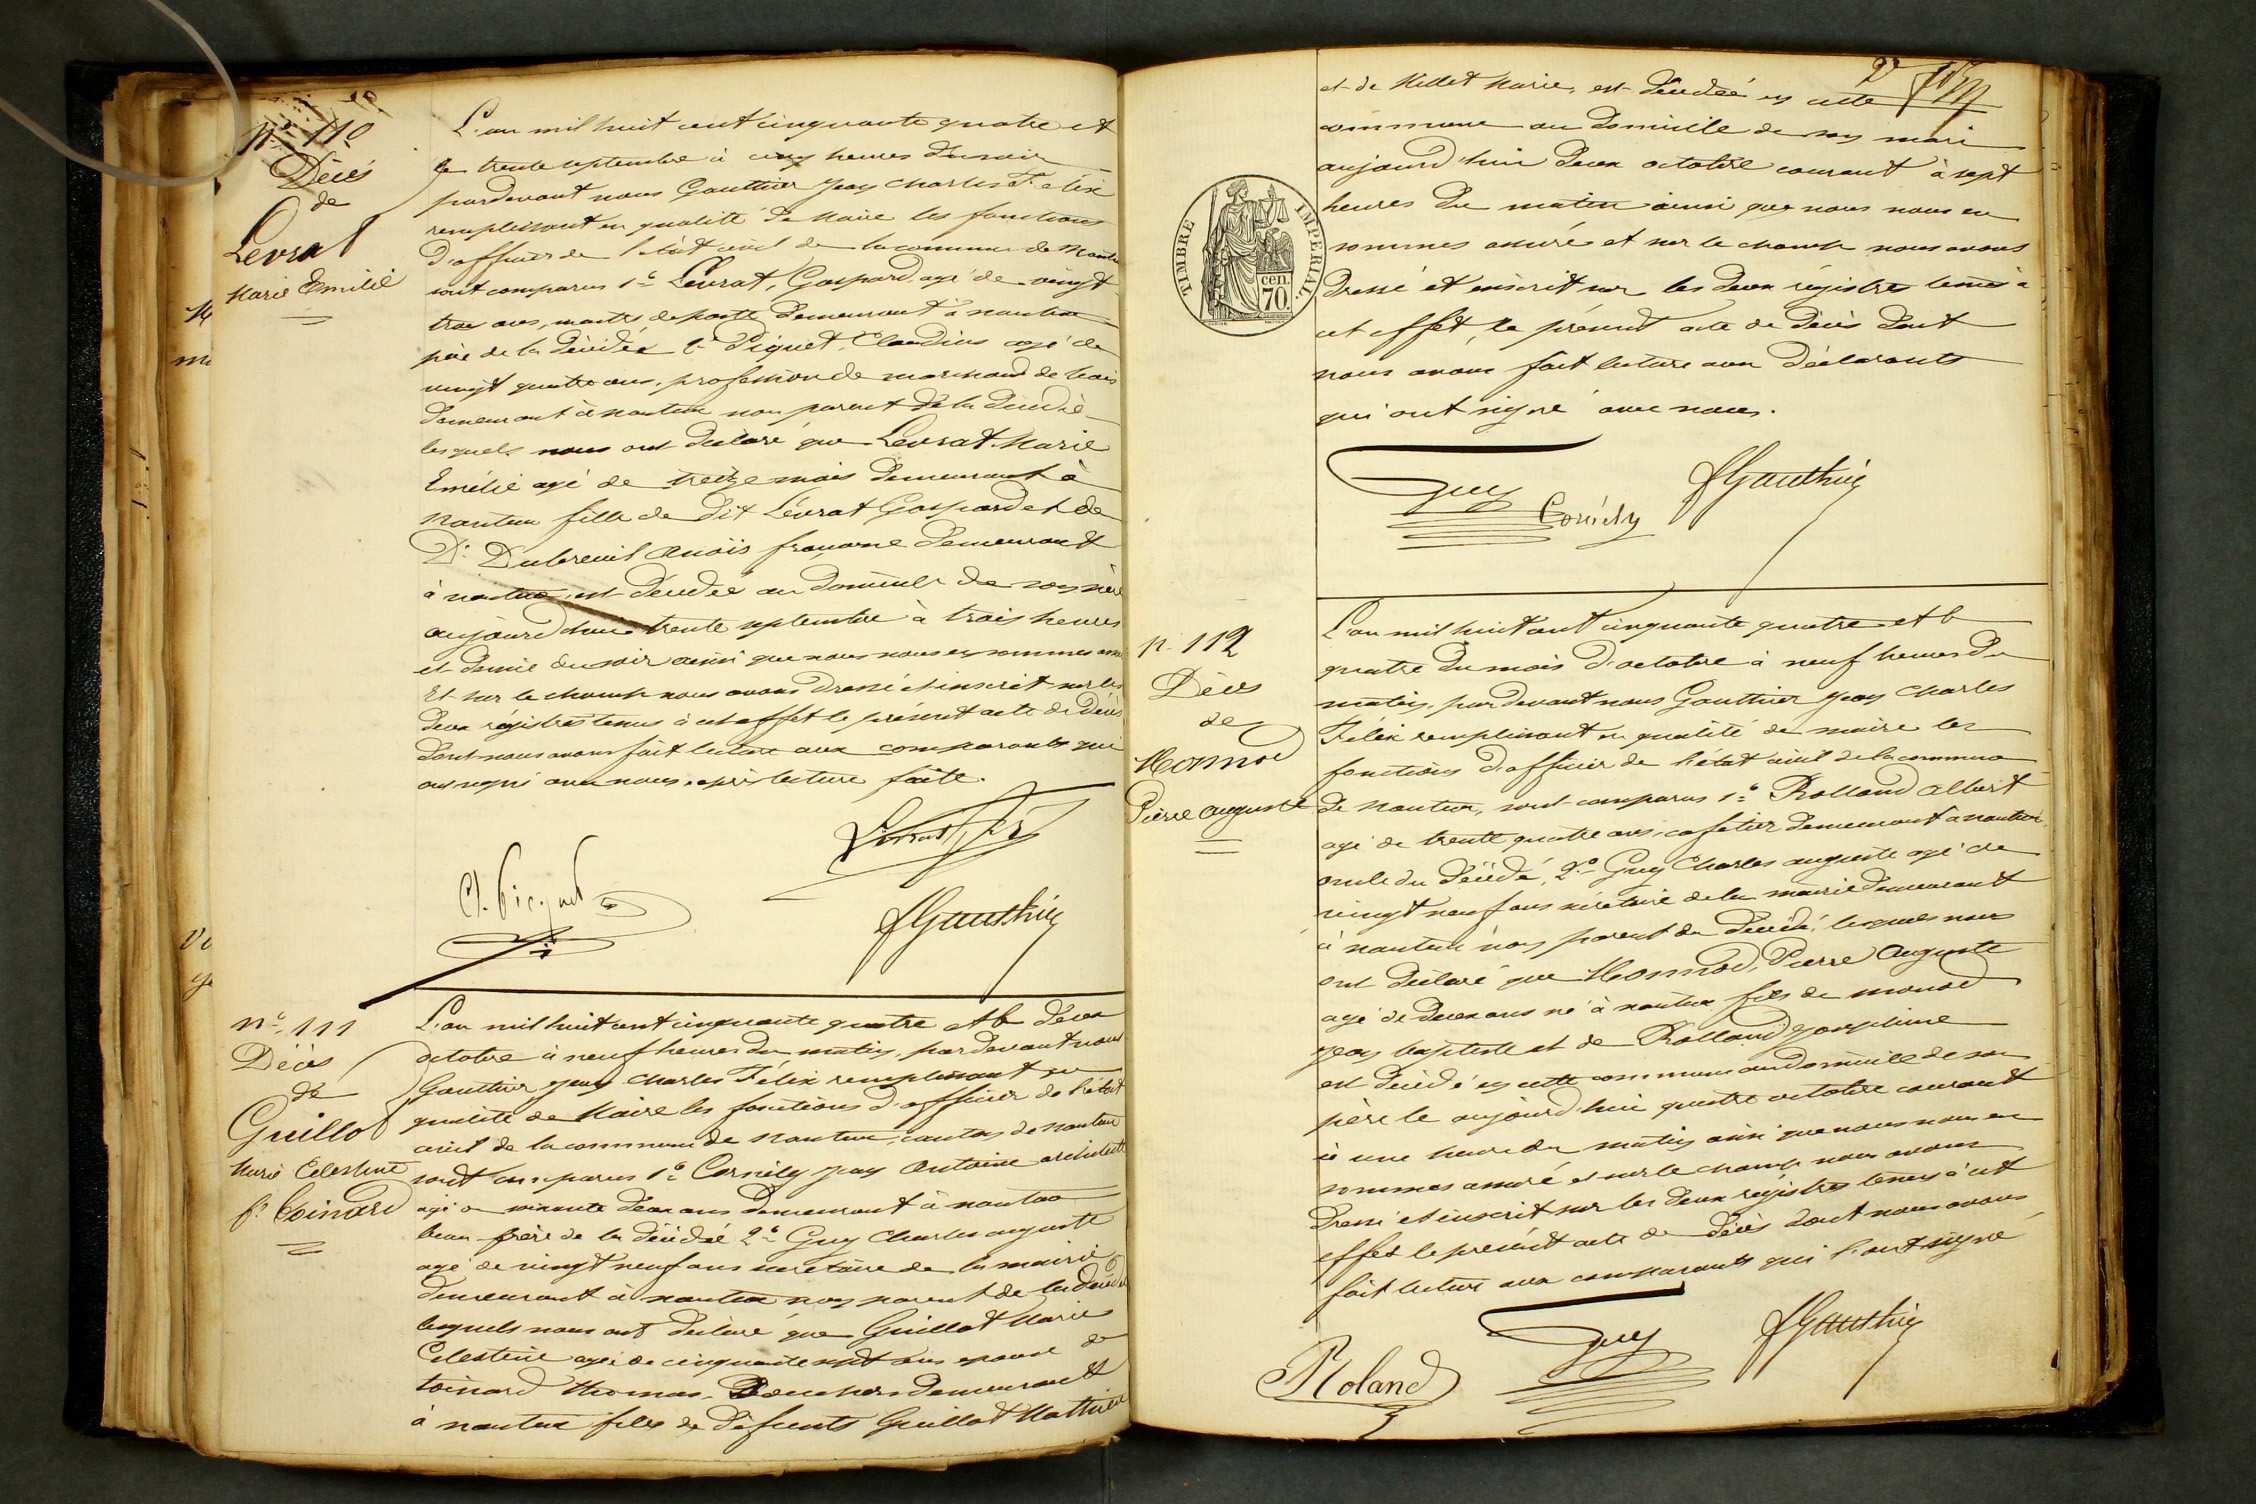 N° 110
Décès
de
Levrat
Marie Emilie
L'an mil huit cent cinquante quatre et
le trente septembre à cinq heures du soir
pardevant nous Gauthier Jean Charles Félix
remplissant en qualité de Maire les fonctions
d'officier de l'état civil de la commune de Nantua
sont comparus 1° Levrat, Gaspard agé de vingt
trois ans, maitre de poste demeurant à nantua
père de la décédée 2° Piquet, Claudius agé de
vingt quatre ans, profession de marchand de bois
demeurant à nantua non parent de la décédée
lesquels nous ont declaré que Levrat Marie
Emélie agé de treize mois demeurant à
Nantua fille de dit Lévrat Gaspard et de
De Dubreuil Anaïs françoise demeurant
à nantua, est décédée au domicile de son père
aujourd'hui trente septembre à trois heures
et demie du soir ainsi que nous nous en sommes assuré
Et sur le champ nous avons dressé et inscrit sur les
deux régistres tenus à cet effet le présent acte de décès
dont nous avons fait lecture aux comparants qui
ont signé avec nous, après lecture faite.
Levrat
Cl. Picquet
JGauthier
N° 111
Décès
de
Guillot
Marie Célestine
fe Toinard
L'an mil huit cent cinquante quatre et le deux
octobre à neuf heures du matin, par devant nous
Gauthier Jean Charles Félix remplissant en
qualité de Maire les fonctions d'officier de l'état
civil de la commune de Nantua, canton de nantua
sont comparus 1° Cornély Jean Antoine architecte
agé de soixante deux ans demeurant à nantua
beau frère de la décédée 2° Guy Charles auguste
agé de vingt neuf ans secrétaire de la mairie
demeurant à nantua non parent de la décédée
lesquels nous ont declaré que Guillot Marie
Celestine agée de cinquante sept ans epouse de
toinard Thomas, demeurant
à nantua fille de défunts Guillot Mathieu
et de Millet Marie, est décédée en cette
commune au domicile de son mari
aujourd'hui deux octobre courant à sept
heures du matin ainsi que nous nous en
sommes assuré et sur le champ nous avons
dressé et inscrit sur les deux régistres tenus à
cet effet, le présent acte de décès dont
nous avons fait lecture aux déclarants
qui ont signé avec nous.
TIMBRE IMPERIAL.
70 cen.
Guy
Cornély
JGauthier
N. 112
Décès
de
Monnod
Pierre auguste
L'an mil huit cent cinquante quatre et le
quatre du mois d'octobre à neuf heures du
matin, par devant nous Gauthier Jean Charles
Félix remplissant en qualité de maire les
fonctions d'officier de l'état civil de la commune
de Nantua, sont comparus 1° Rolland albert
agé de trente quatre ans, cafetier demeurant a nantua
oncle du décédé, 2° Guy Charles auguste agé de
vingt neuf ans sécrétaire de la mairie demeurant
à nantua non parent du décédé, lesquels nous
ont déclaré que Monnod, Pierre Auguste
agé de deux ans né à nantua fils de monod
Jean baptiste et de Rolland Josephine
est décédé en cette commune au domicile de son
père le aujourd'hui quatre octobre courant
à une heure du matin ainsi que nous nous en
sommes assuré et sur le champ nous avons
dressé et inscrit sur les deux régistres tenus à cet
effet le présent acte de décès dont nous avons
fait lecture aux comparants qui l'ont signé
Roland
Guy
JGauthier